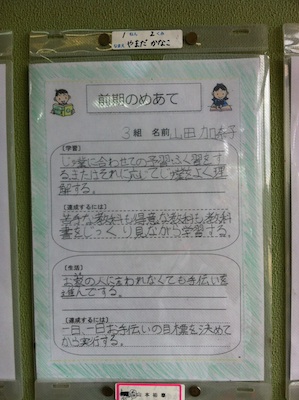 1ねん 2くみ
なまえ やまだ かなこ
前期のめあて
3組 名前 山田 加奈子
【学習】
じゅ業に合わせての予習・ふく習をす
るまたはそれに応いてじゅ業をよく理
解する。
【達成するには】
苦手な教科も得意な教科も教科
書をじっくり見ながら学習する。
【生活】
お家の人に言われなくても手伝いを
進んでする。
【達成するには】
一日一日お手伝いの目標を決めて
から実行する。